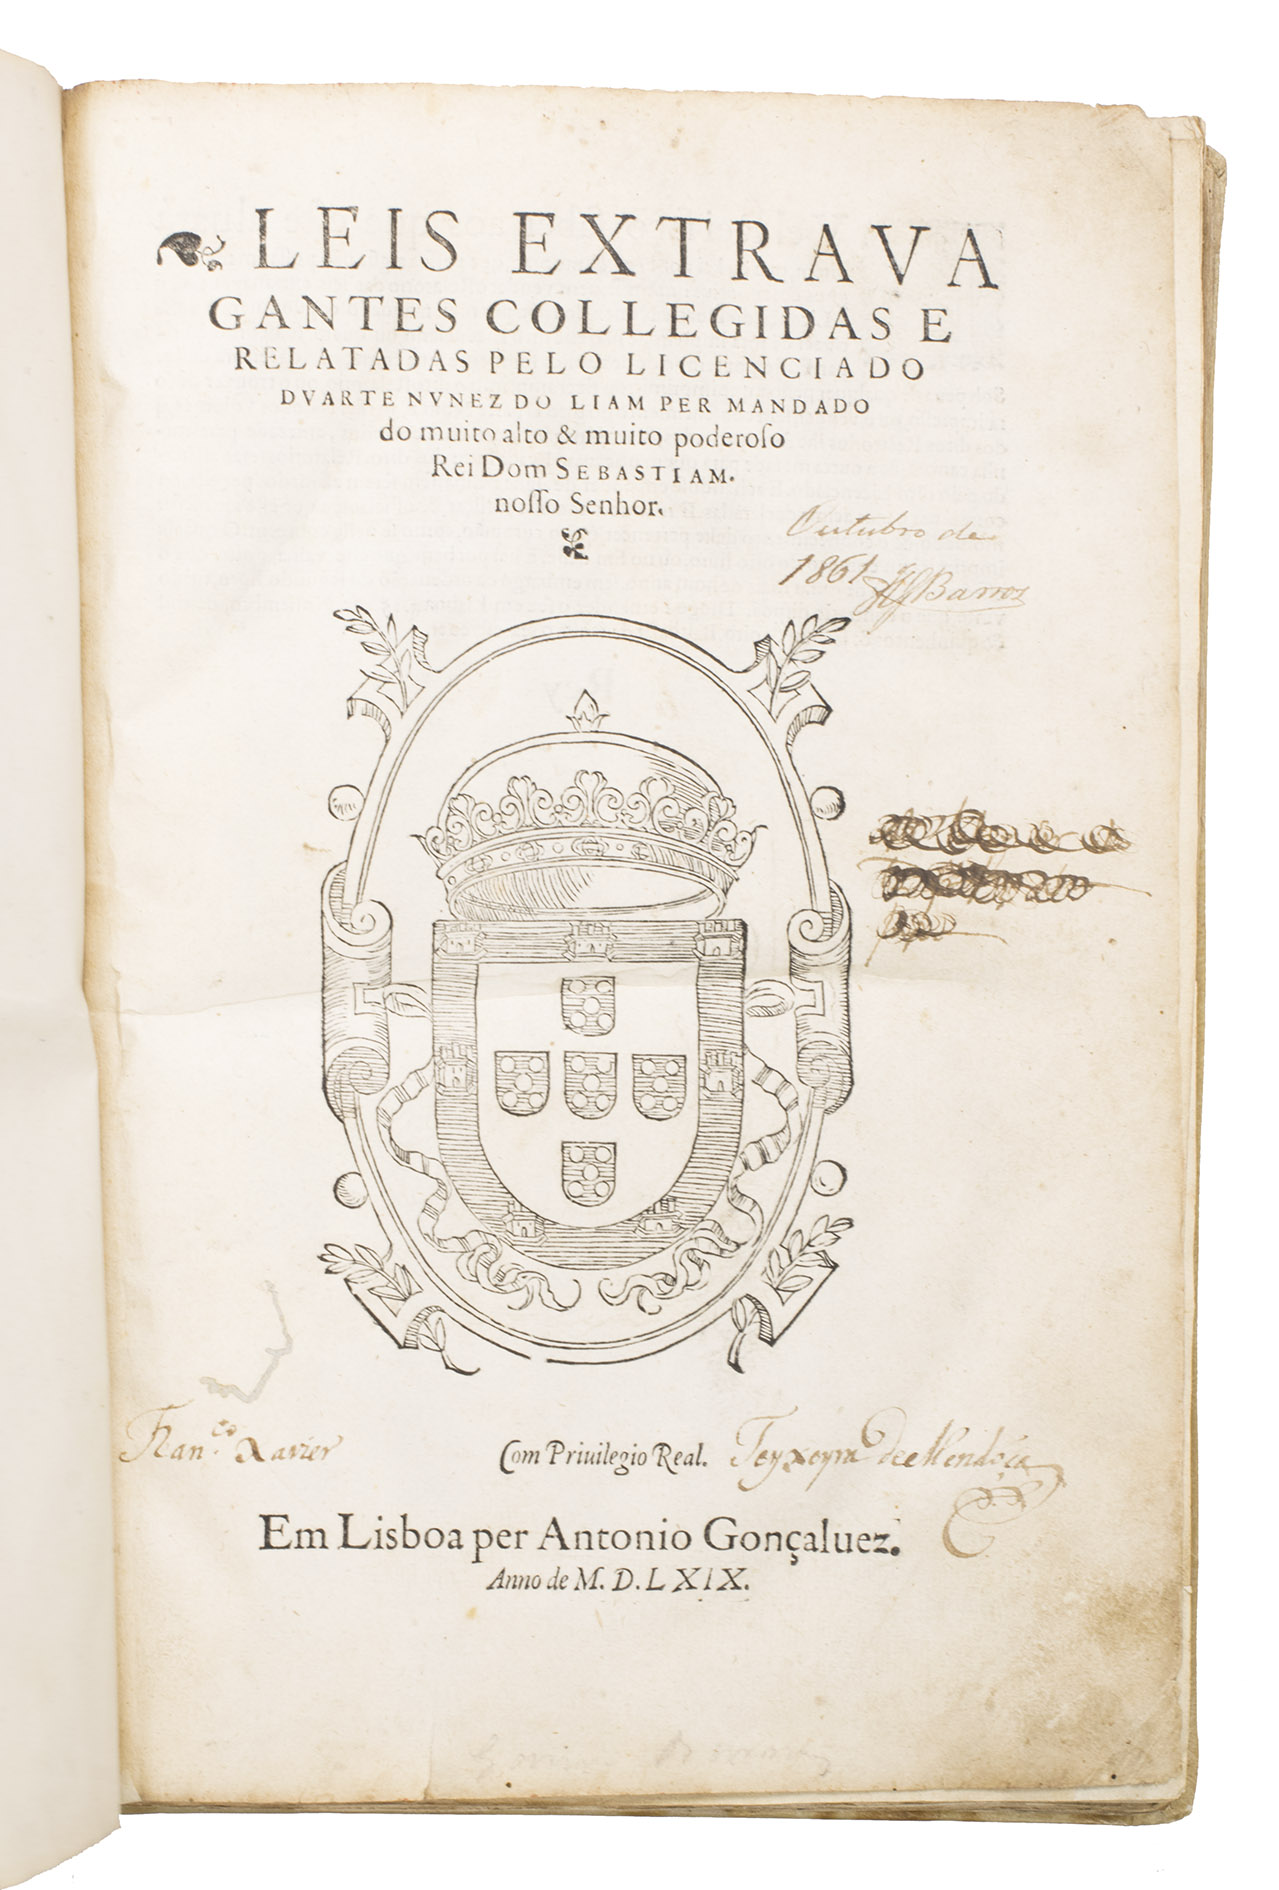 LEIS EXTRAVA
GANTES COLLEGIDAS E
RELATADAS PELO LICENCIADO
DVARTE NVNEZ DO LIAM PER MANDADO
do muito alto & muito poderoſo
Rei Dom SEBASTIAM.
noſſo Senhor.
Outubro de
1861 Barros
Fran.co Xavier
Com Priuilegio Real.
Teyxeyra de Mendoça
Em Lisboa per Antonio Gonçaluez.
Anno de M. D. LXIX.